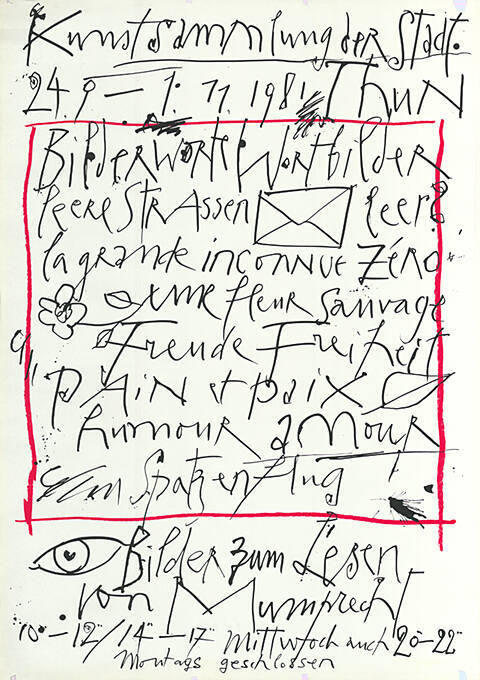 Kunstsammlung der Stadt
24.9 – 1. 11. 1981 Thun
Bilderworte Wortbilder
leere Strassen leer?
la grande inconnue Zéro
une fleur sauvage
Freude Freiheit
pain et paix
humour amour
Spatzenflug !
Bilder zum Lesen
von Mumprecht
10–12/14–17 Mittwoch auch 20–22
Montags geschlossen